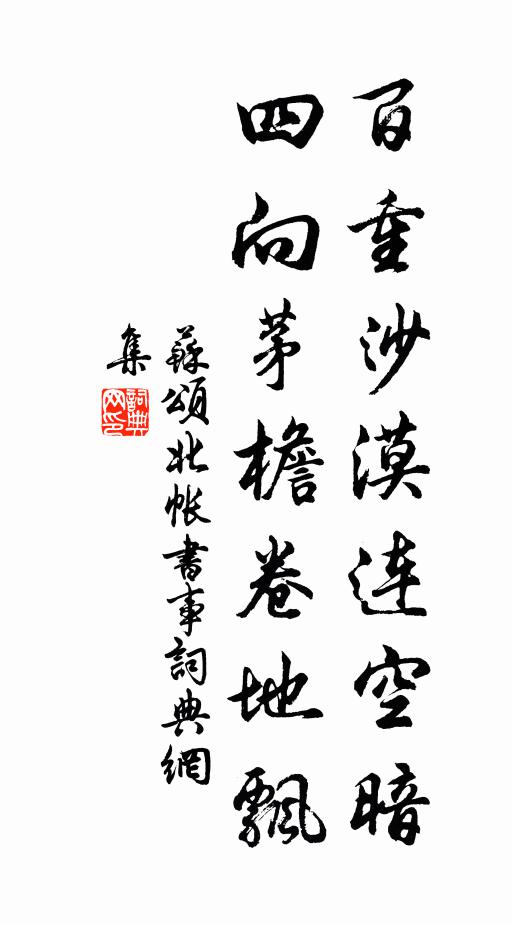 百重沙漠連空暗
四向茅檐卷地飄
蘇頌北帐書事詞典網
集
詞典
网印